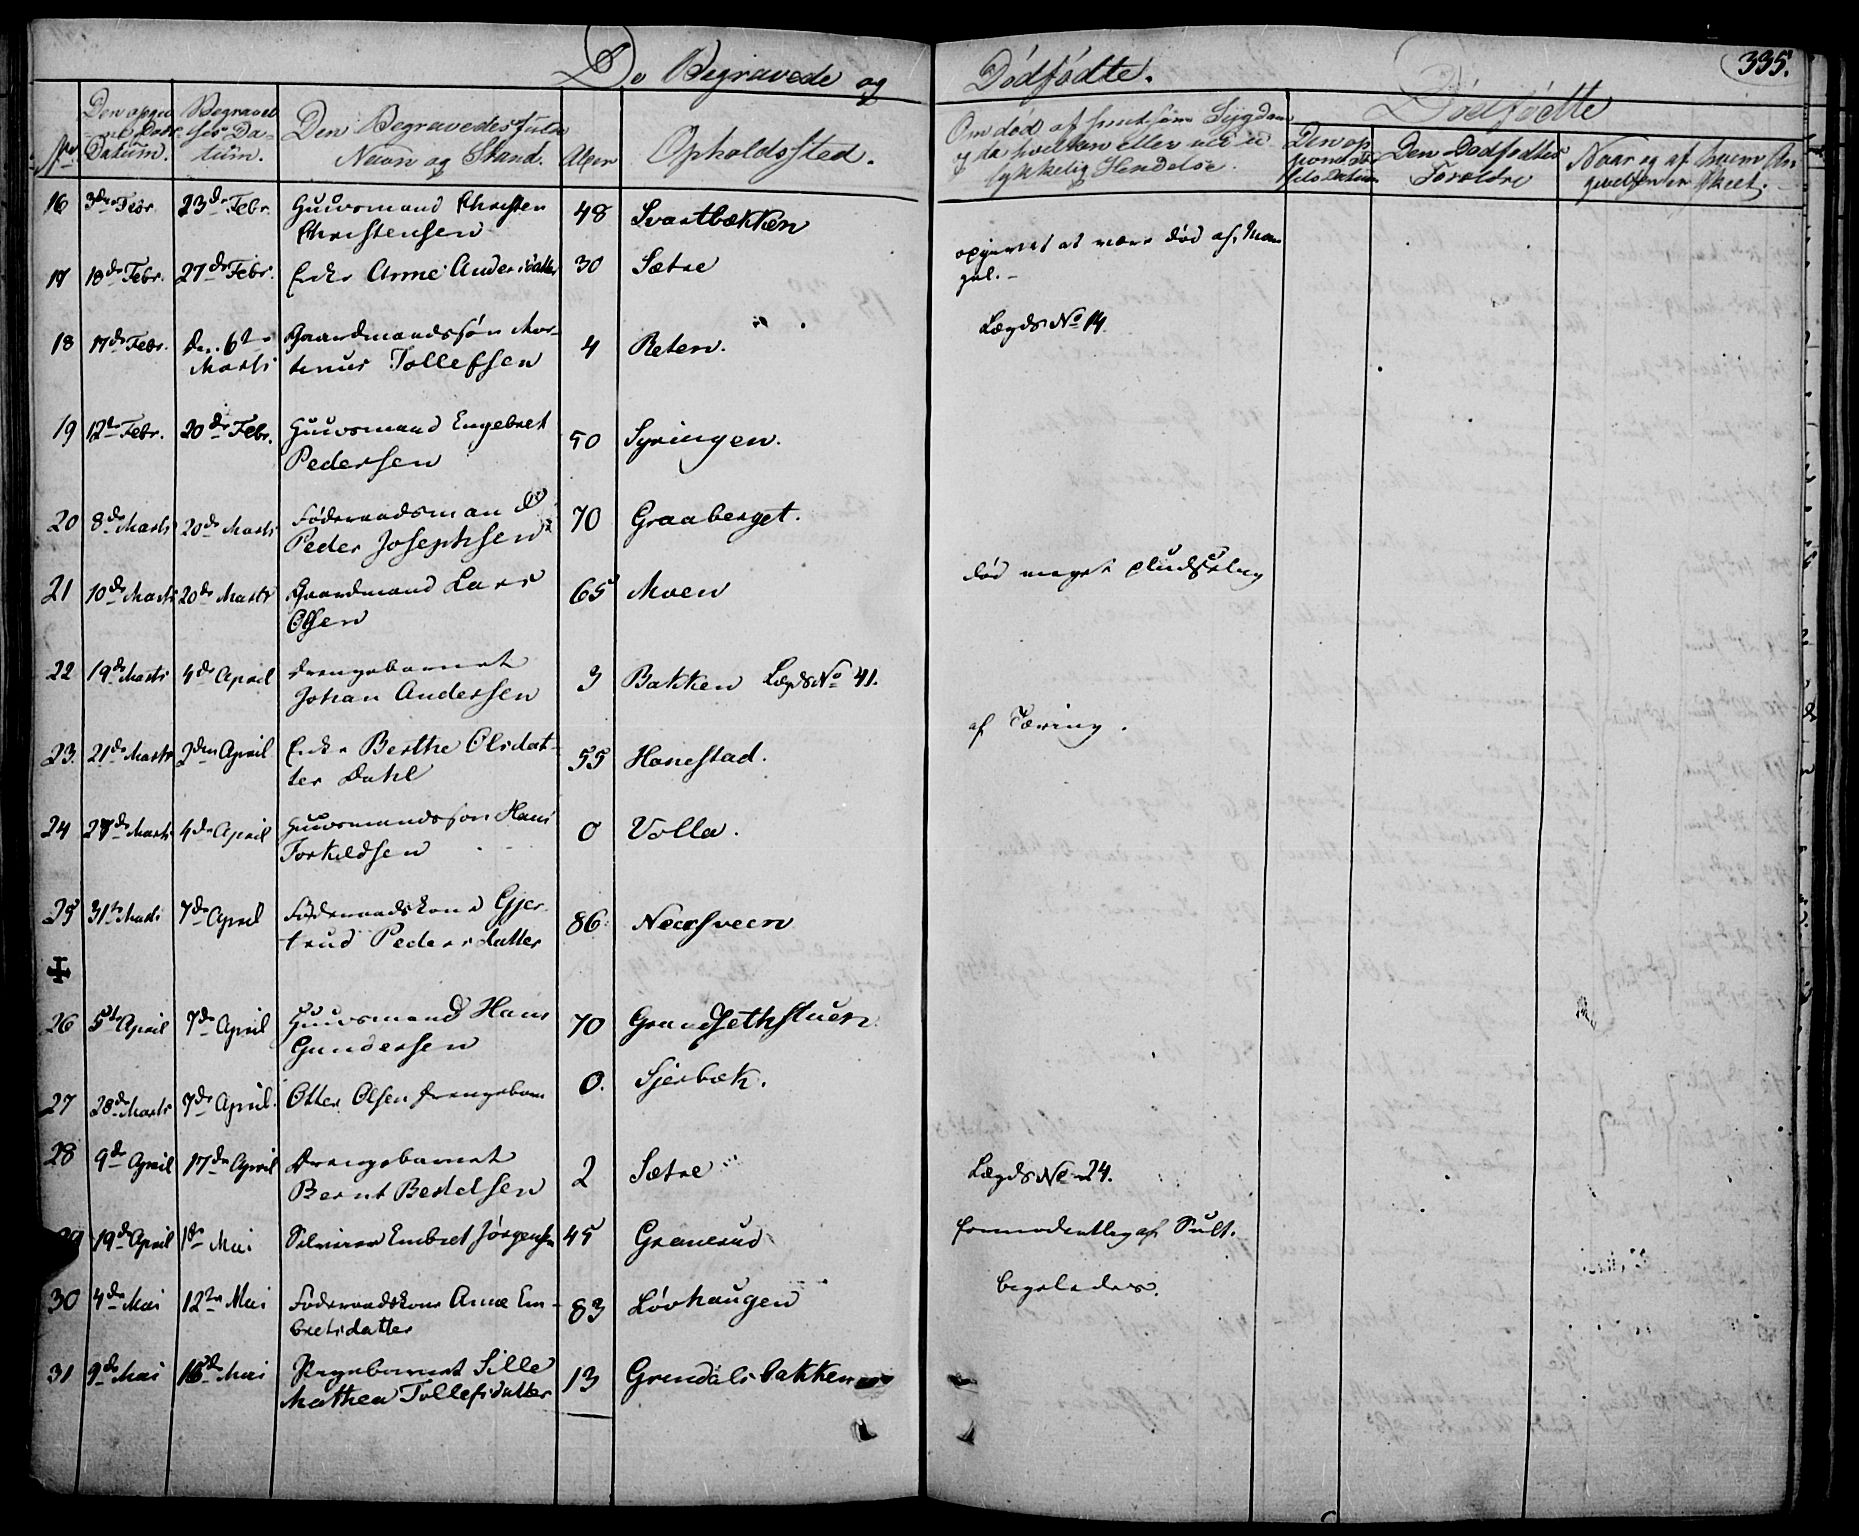 De Begravede og Dødfødte.
335.
No
Den opgivne Døds Datum.
Begravelses Datum.
Den Begravedes fulde Navn og Stand.
Alder
Opholdssted.
Om død af smitsom Sygdom
og da hvilken eller ved ulykkelig Hendelse.
Dødfødte
Den Dødfødtes Forældre
Naar og af hvem Angivelsen er skeet.
16 3die Febr. 23de Febr. Huusmand Christen Christensen 48 Svartbækken
17 18de Febr. 27de Febr. Enke Anne Andersdatter 30 Sætre opgivet at være død af Mangel.
18 17de Febr. Den 6te Marts Gaardmandssøn Martinus Tollefsen 4 Reten. Lægds No 14.
19 12te Febr. 20de Febr. Huusmand Engebret Pedersen 50 Syringen.
20 8de Marts 20de Marts Føderaadsmand Peder Josephsen 70 Graaberget.
21 10de Marts 20de Marts Gaardmand Lars Olsen 65 Moen død meget pludselig
22 19de Marts 4de April Drengebarnet Johan Andersen 3 Bakken Lægds No 41.
23. 21de Marts 2den April Enke Berthe Olsdatter Dahl 55 Hanestad. af Tæring.
24 27de Marts 4de April Huusmandssøn Hans Torkildsen 0 Volla.
25 31te Marts 7de April Føderaadskone Gjertrud Pedersdatter 86 Neersveen
26 5te April 7de April Huusmand Hans Gundersen 70 Grundsethstuen
27 28de Marts 7de April. Otter Olsen Drengebarn 0. Sjerbæk.
28 9de April 17de April Drengebarnet Bernt Bertelsen 2 Sætre Lægds No 24.
29 19de April 1ste Mai Embret Jørgensen 45 Granerud formodentlig af Sult.
30 4de Mai 12te Mai Føderaadskone Anne Embretsdatter 83 Løvhaugen ligeledes.
31 9de Mai 16de Mai Pigebarnet Sille Mathea Tollefsdatter 13 Grindalsbakken